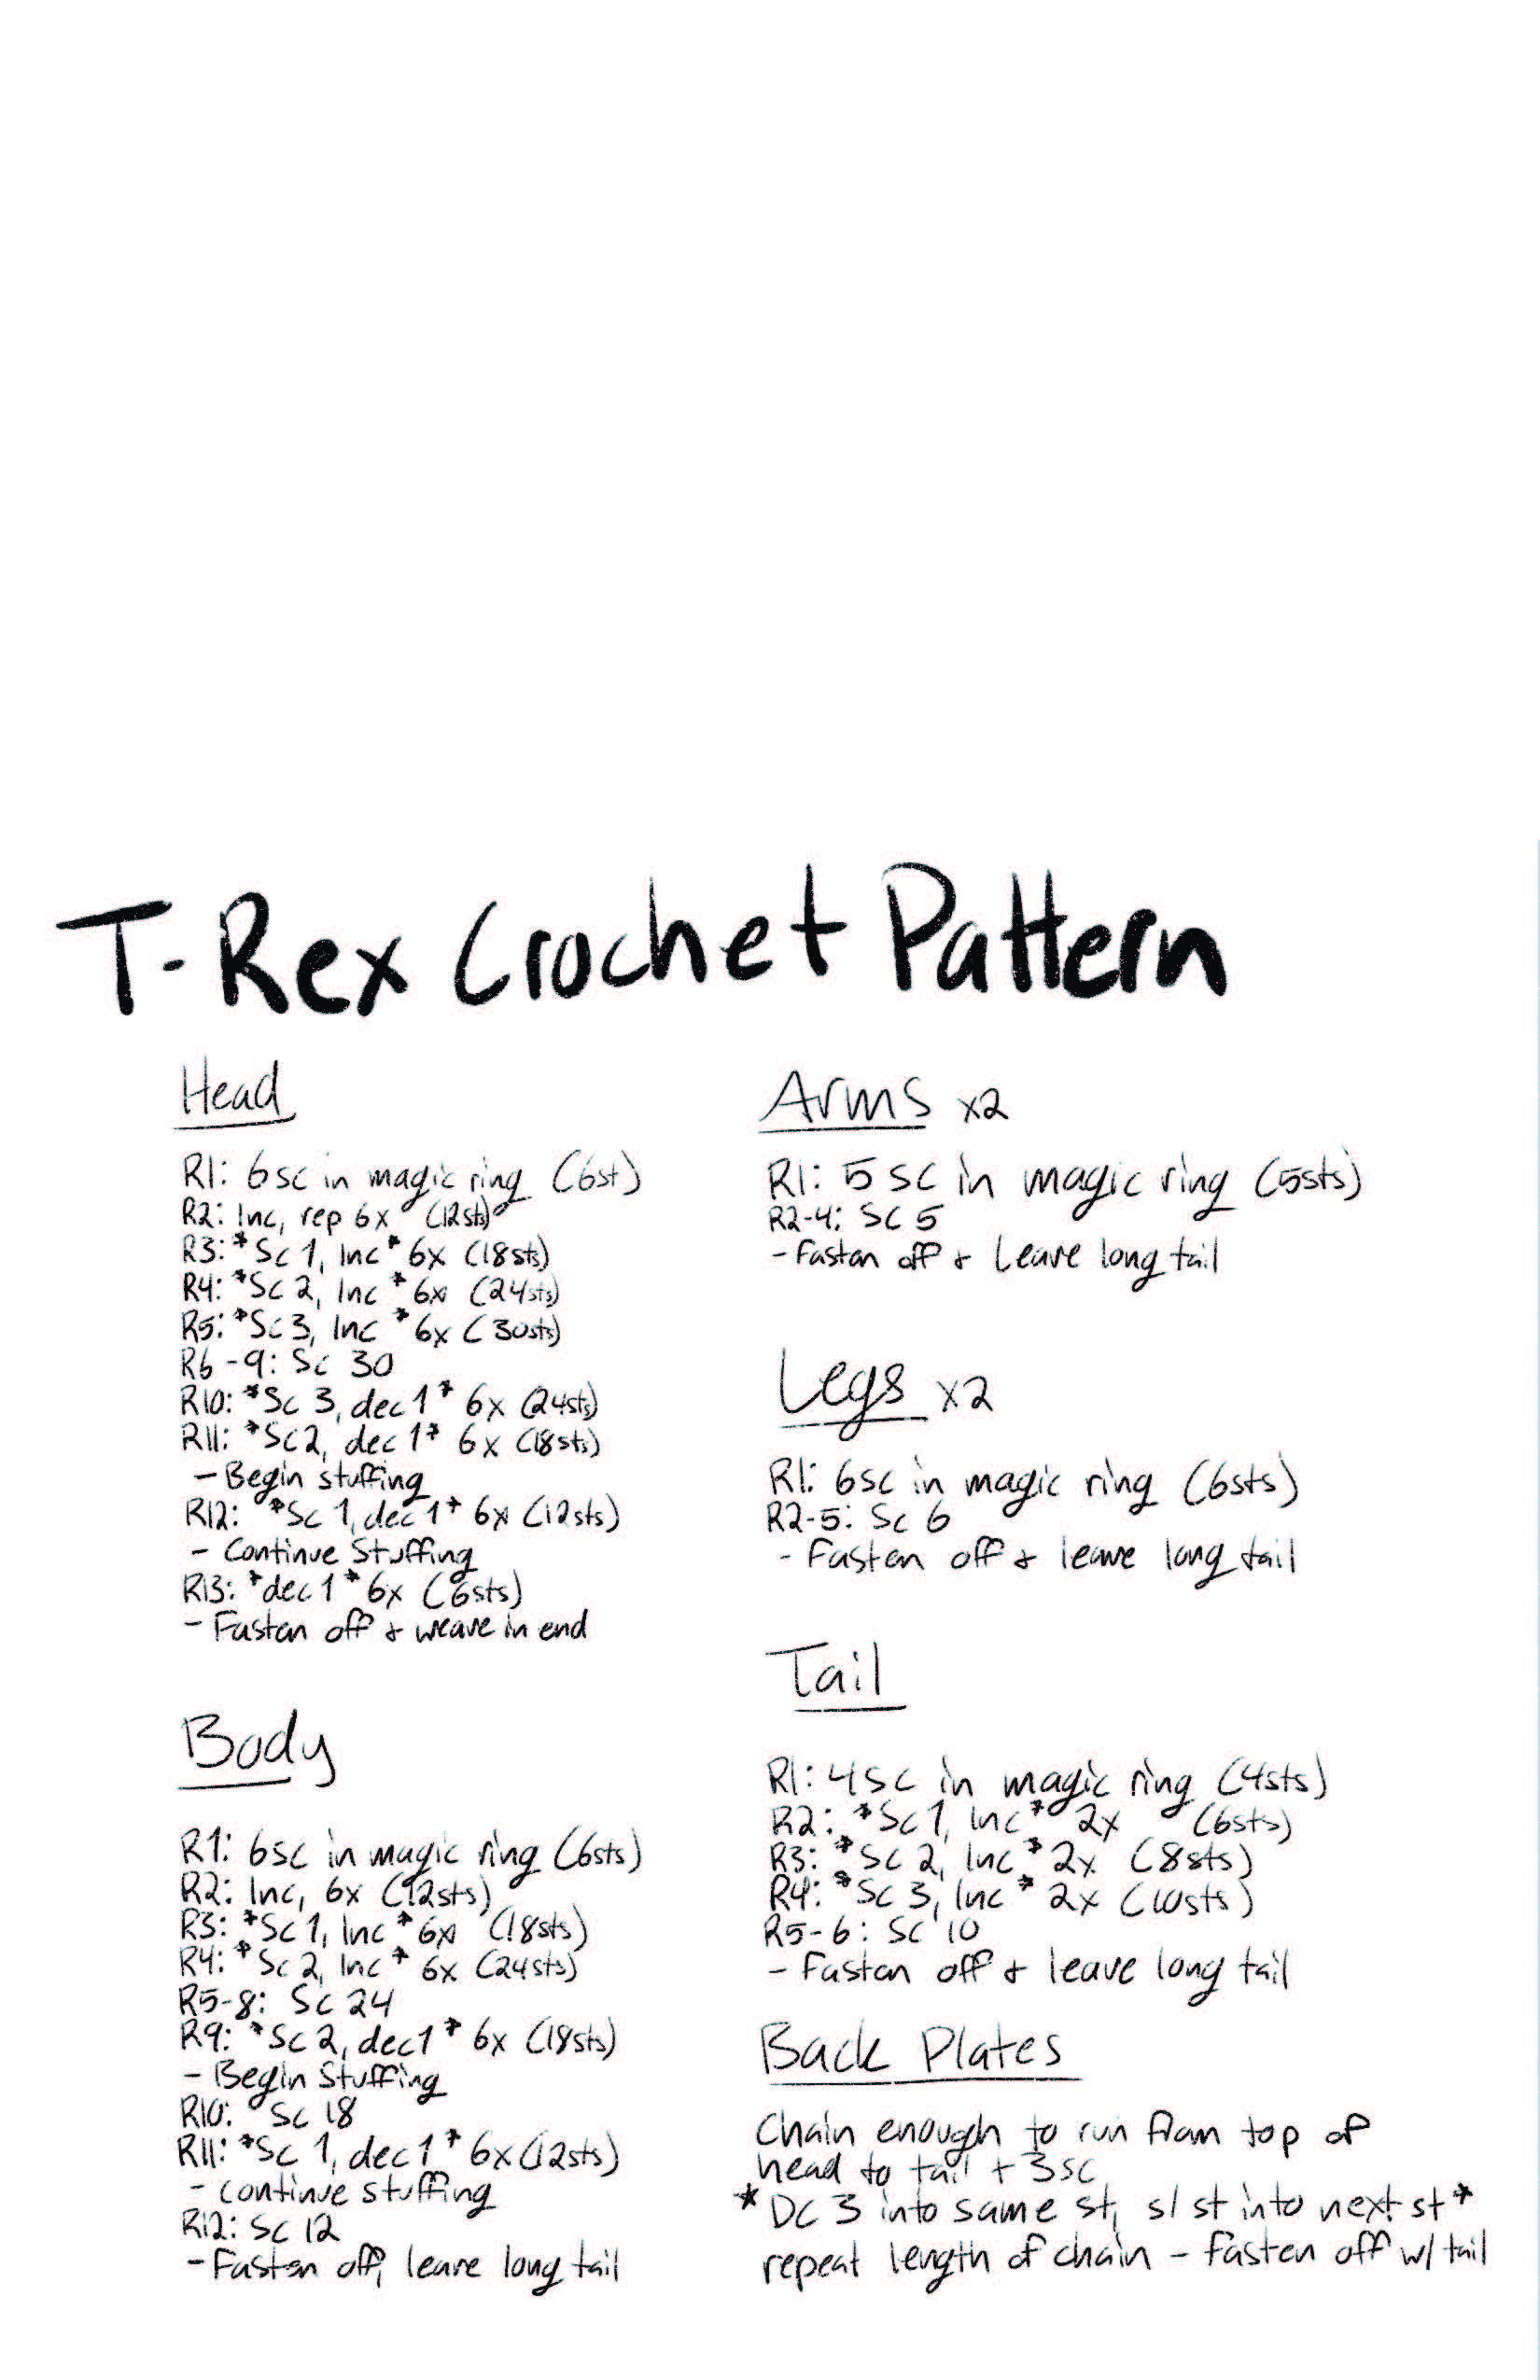 T-Rex Crochet Pattern
Head
R1: 6sc in magic ring (6st)
R2: Inc, rep 6x (12sts)
R3: *Sc 1, Inc* 6x (18sts)
R4: *Sc 2, Inc* 6x (24sts)
R5: *Sc 3, Inc* 6x (30sts)
R6-9: Sc 30
R10: *Sc 3, dec 1* 6x (24sts)
R11: *Sc 2, dec 1* 6x (18sts)
- Begin stuffing
R12: *Sc 1, dec 1* 6x (12sts)
- Continue Stuffing
R13: *dec 1* 6x (6sts)
- Fasten off & weave in end
Body
R1: 6sc in magic ring (6sts)
R2: Inc, 6x (12sts)
R3: *Sc 1, Inc* 6x (18sts)
R4: *Sc 2, Inc* 6x (24sts)
R5-8: Sc 24
R9: *Sc 2, dec 1* 6x (18sts)
- Begin Stuffing
R10: Sc 18
R11: *Sc 1, dec 1* 6x (12sts)
- continue stuffing
R12: Sc 12
- Fasten off, leave long tail
Arms x2
R1: 5 sc in magic ring (5sts)
R2-4: SC 5
- Fasten off & Leave long tail
Legs x2
R1: 6sc in magic ring (6sts)
R2-5: Sc 6
- Fasten off & leave long tail
Tail
R1: 4sc in magic ring (4sts)
R2: *Sc 1, Inc* 2x (6sts)
R3: *Sc 2, Inc* 2x (8sts)
R4: *Sc 3, Inc* 2x (10sts)
R5-6: Sc 10
- Fasten off & leave long tail
Back Plates
Chain enough to run from top of
head to tail + 3sc
*DC 3 into same st, sl st into next st*
repeat length of chain - fasten off w/ tail